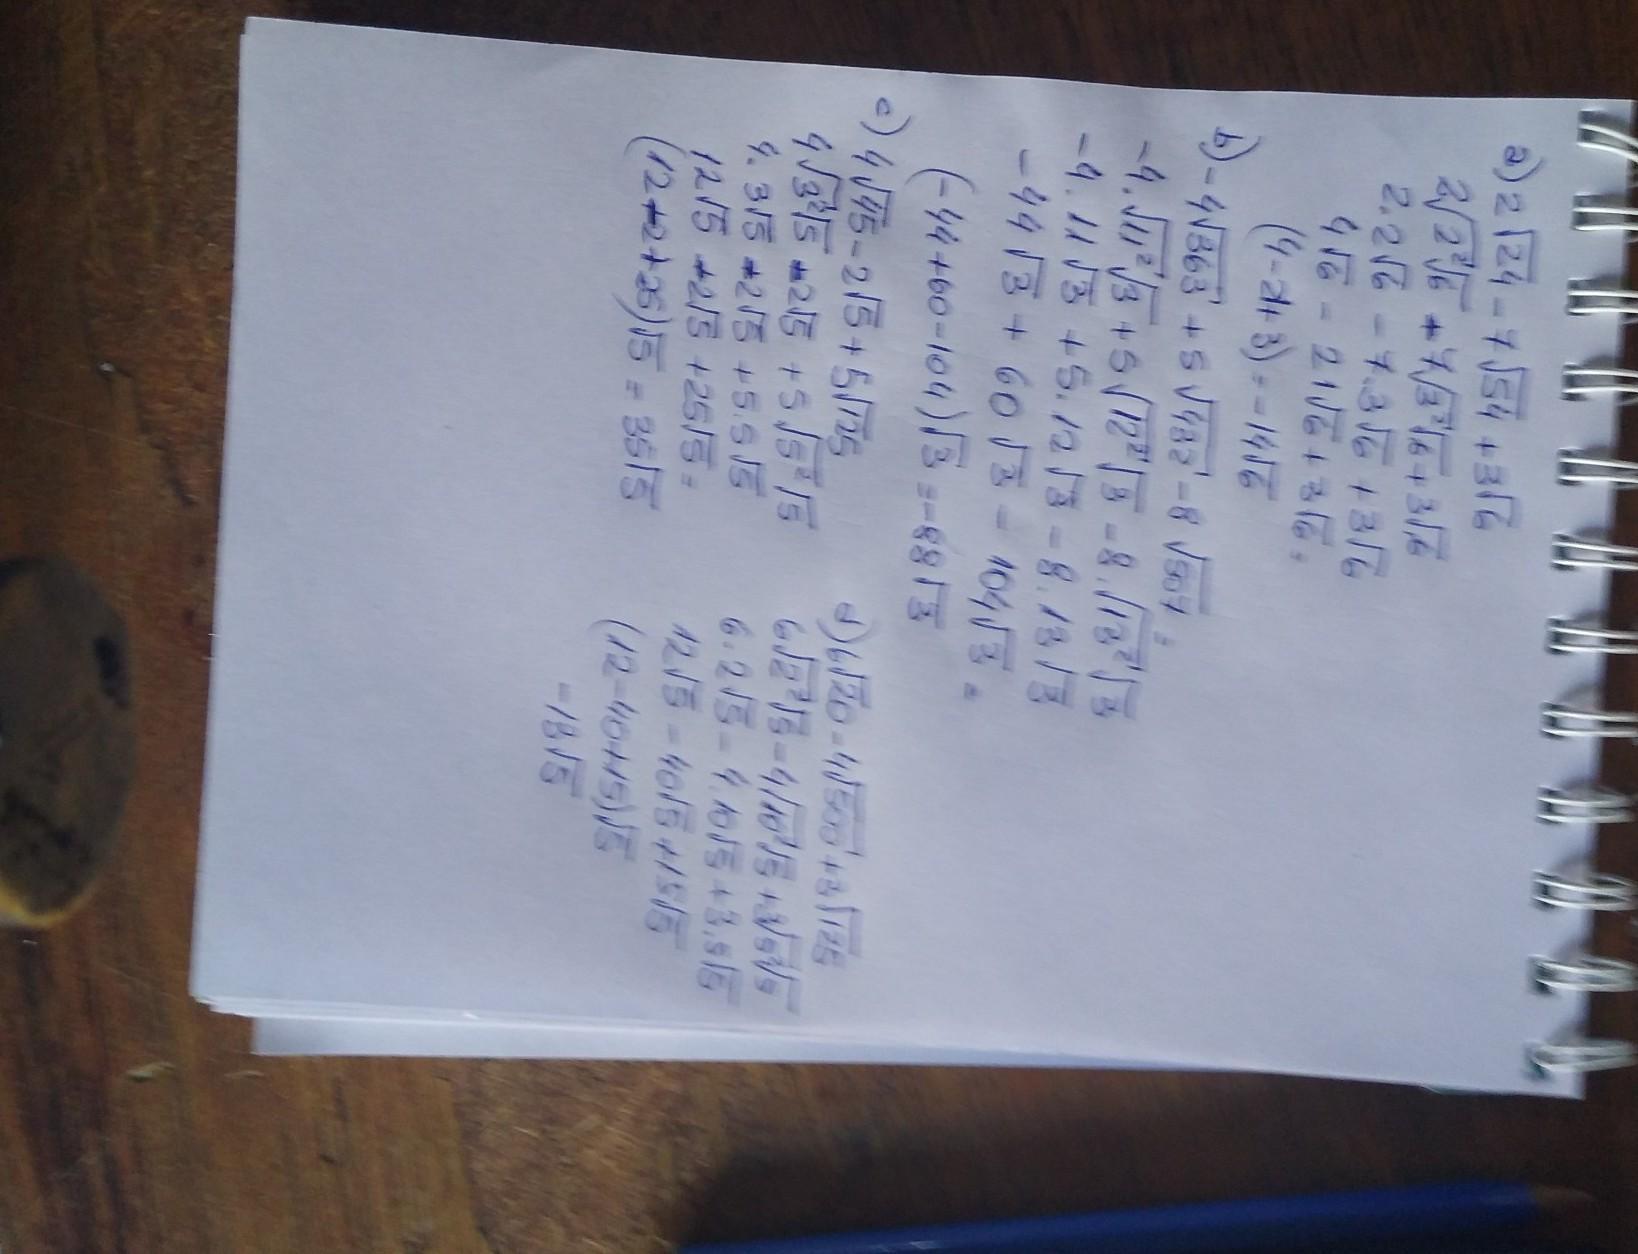 a) 2√24 - 7√54 + 3√6
2√2²√6 - 7√3²√6 + 3√6
2.2√6 - 7.3√6 + 3√6
4√6 - 21√6 + 3√6 =
(4 - 21 + 3) = -14√6
b) -4√363 + 5√432 - 8√507 =
-4.√11²√3 + 5√12²√3 - 8.√13²√3
-4.11√3 + 5.12√3 - 8.13√3
-44√3 + 60√3 - 104√3 =
(-44 + 60 - 104)√3 = -88√3
c) 4√45 - 2√5 + 5√125
4√3²√5 - 2√5 + 5√5²√5
4.3√5 - 2√5 + 5.5√5
12√5 - 2√5 + 25√5 =
(12 - 2 + 25)√5 = 35√5
d) 6√20 - 4√500 + 3√125
6√2²√5 - 4√10²√5 + 3√5²√5
6.2√5 - 4.10√5 + 3.5√5
12√5 - 40√5 + 15√5
(12 - 40 + 15)√5
-13√5